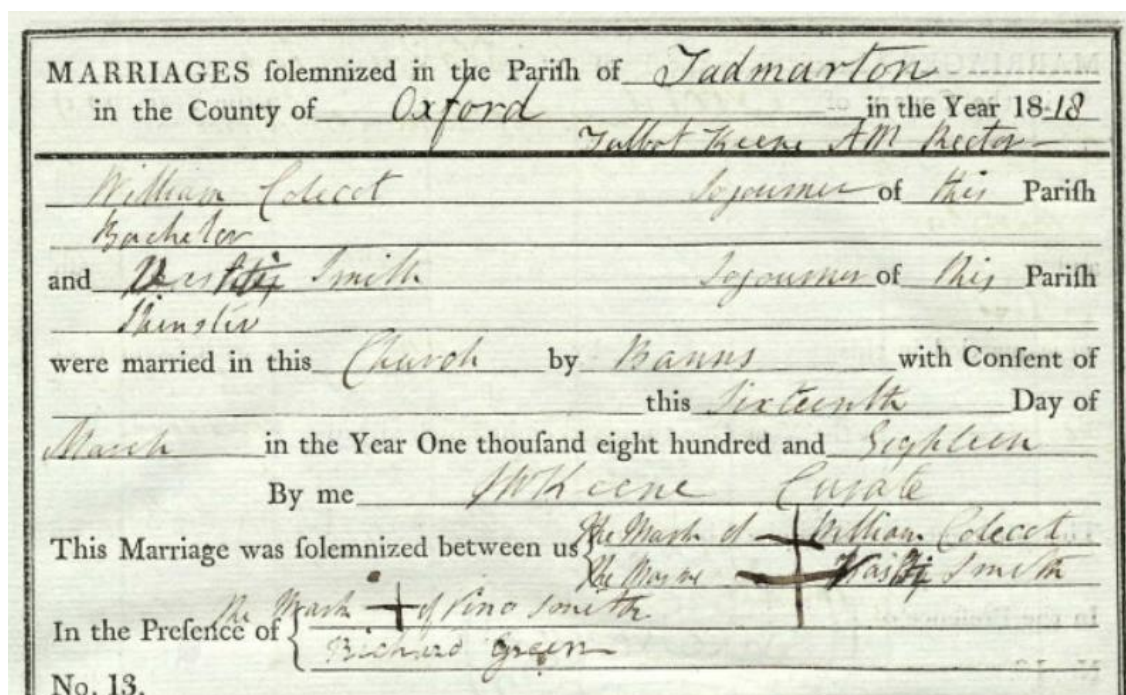 MARRIAGES ſolemnized in the Pariſh of Tadmarton
in the County of Oxford in the Year 18-18
Talbot Keene AM Rector
William Colecot Sojourner of this Pariſh
Bachelor
and Smith Sojourner of this Pariſh
Spinster
were married in this Church by Banns with Conſent of
this Sixteenth Day of
March in the Year One thouſand eight hundred and Eighteen
By me Keene Curate
This Marriage was ſolemnized between us
The Mark of William Colecot
The Mark Smith
In the Preſence of
The Mark of Smith
Richard Green
No. 13.